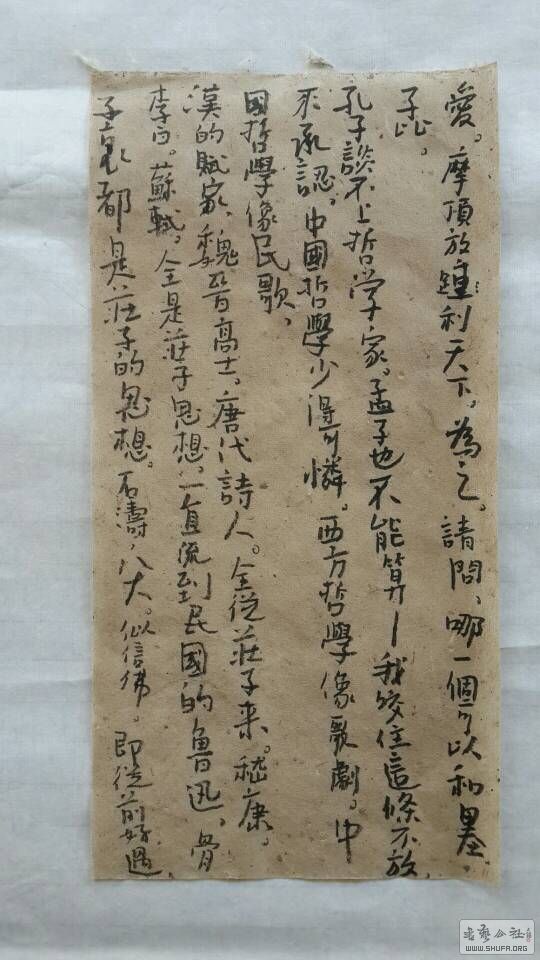 愛。摩頂放踵利天下。為之。請問、哪一個可以和墨
子比。
孔子談不上哲学家。孟子也不能算—我咬住這條不放。
不承認。中國哲學少得可憐。西方哲學像歌劇。中
國哲學像民歌、
漢的賦家、魏晋高士。唐代詩人。全從莊子来。嵇康。
李白。蘇軾。全是莊子思想。一直流到民國的魯迅、骨
子裏都是莊子的思想。石濤、八大。似信佛。即從前好過
书艺公社
WWW.SHUFA.ORG